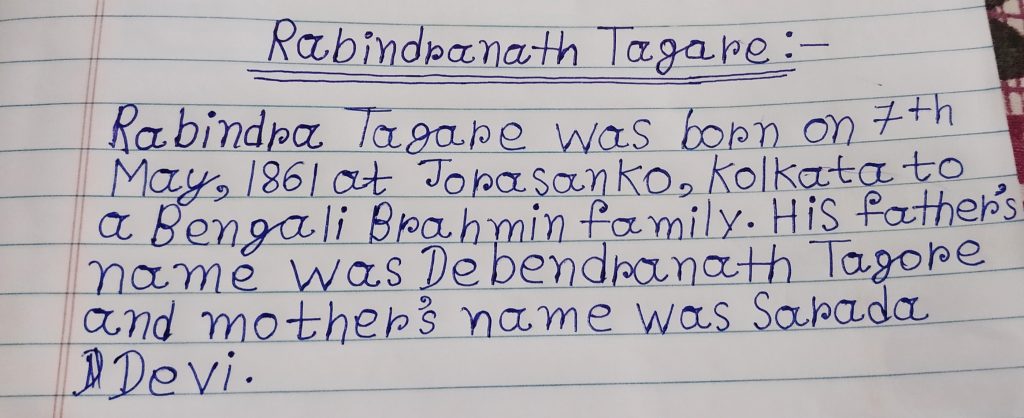 Rabindranath Tagare:-
Rabindra Tagare was born on 7th
May, 1861 at Jorasanko, Kolkata to
a Bengali Brahmin family. His father's
name was Debendranath Tagore
and mother's name was Sarada
Devi.